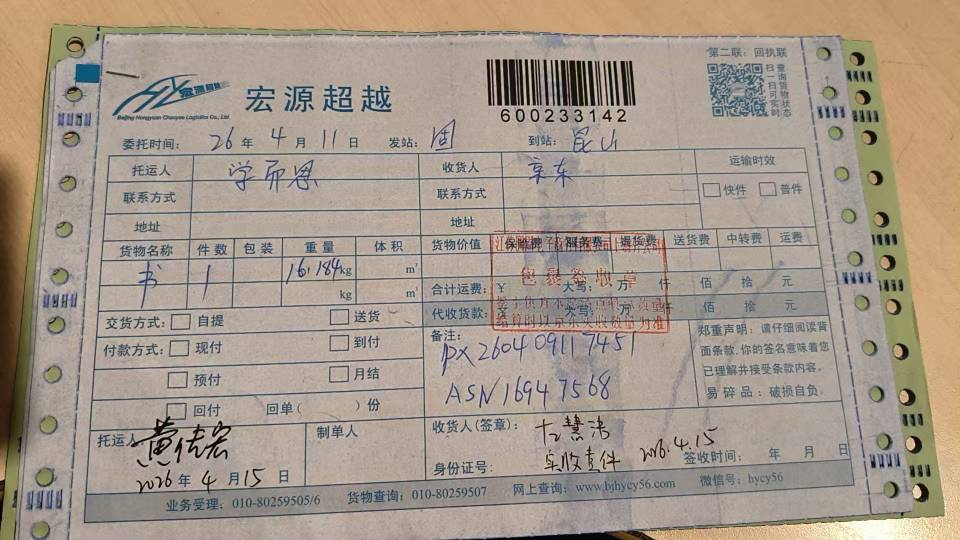 第二联：回执联
宏源超越
Beijing Hongyuan Chaoyue Logistics Co., Ltd.
600233142
扫一扫可实时
查询货物状态
委托时间： 26 年 4 月 11 日 发站： 固 到站： 昆山
托运人 学而思 收货人 京东 运输时效
联系方式 联系方式 快件 普件
地址 地址
货物名称 件数 包装 重量 体积 货物价值 保险费 服务费 提货费 送货费 中转费 运费
书 1 16.184kg m³
包裹签收章
kg m³ 合计运费：¥ 大写： 万 仟 佰 拾 元
代收货款：¥ 大写： 万 仟 佰 拾 元
交货方式： 自提 送货
付款方式： 现付 到付
预付 月结
回付 回单( )份
备注：
PX260409117451
ASN16947568
郑重声明：请仔细阅读背
面条款，你的签名意味着您
已理解并接受条款内容。
易碎品：破损自负。
托运人 制单人
2026 年 4 月 15 日
收货人(签章)：
身份证号： 2026.4.15 签收时间： 年 月 日
业务受理：010-80259505/6 货物查询：010-80259507 网上查询：www.bjhycy56.com 微信号：hycy56